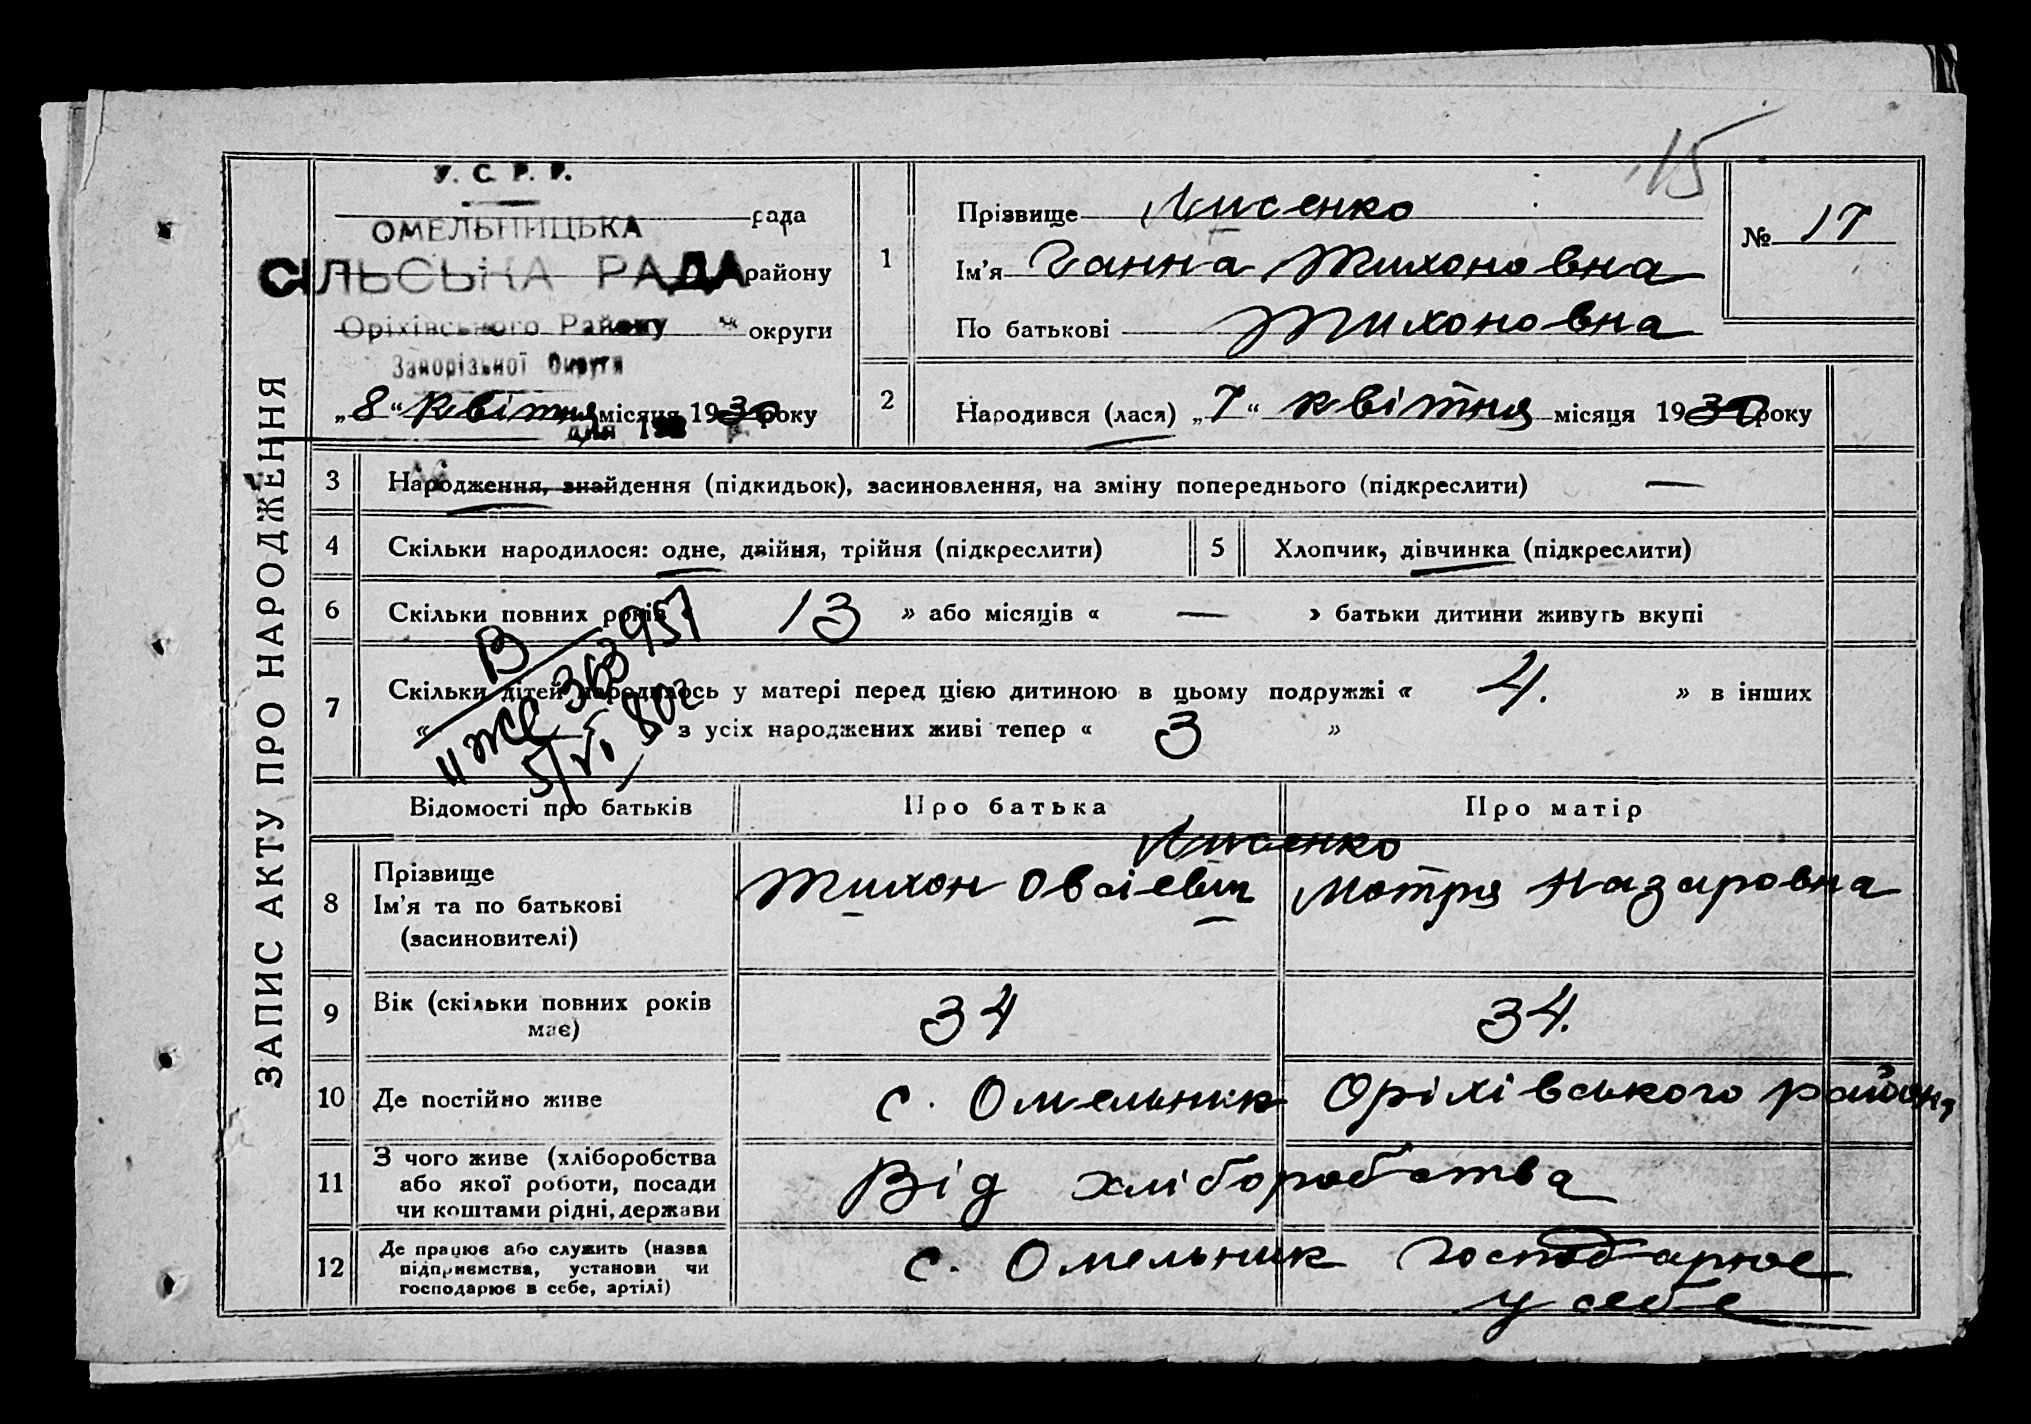 15
ЗАПИС АКТУ ПРО НАРОДЖЕННЯ
У. С. Р. Р.
рада
ОМЕЛЬНИЦЬКА
СІЛЬСЬКА РАДА району
Оріхівського Району округи
Запорізької Округи
„8“ квітня місяця 1930 року
для 192 р.
1
Прізвище Лисенко
Ім'я Ганна Тихоновна
По батькові Тихоновна
№ 17
2
Народився (лася) „7“ квітня місяця 1930 року
3 Народження, знайдення (підкидьок), засиновлення, на зміну попереднього (підкреслити) —
4 Скільки народилося: одне, двійня, трійня (підкреслити)
5 Хлопчик, дівчинка (підкреслити)
6 Скільки повних років « 13 » або місяців « — » батьки дитини живуть вкупі
7 Скільки дітей народилось у матері перед цією дитиною в цьому подружжі « 4. » в інших
« — » з усіх народжених живі тепер « 3 »
В
ІІ ЖС 363957
5/VI 80г
Відомості про батьків Про батька Про матір
8 Прізвище
Ім'я та по батькові
(засиновителі)
Лисенко
Тихон Мотря Назаровна
9 Вік (скільки повних років
має)
34 34.
10 Де постійно живе с. Омельник Оріхівського району
11 З чого живе (хліборобства
або якої роботи, посади
чи коштами рідні, держави
Від хліборобства
12 Де працює або служить (назва
підприємства, установи чи
господарює в себе, артілі)
с. Омельник господарює
у себе